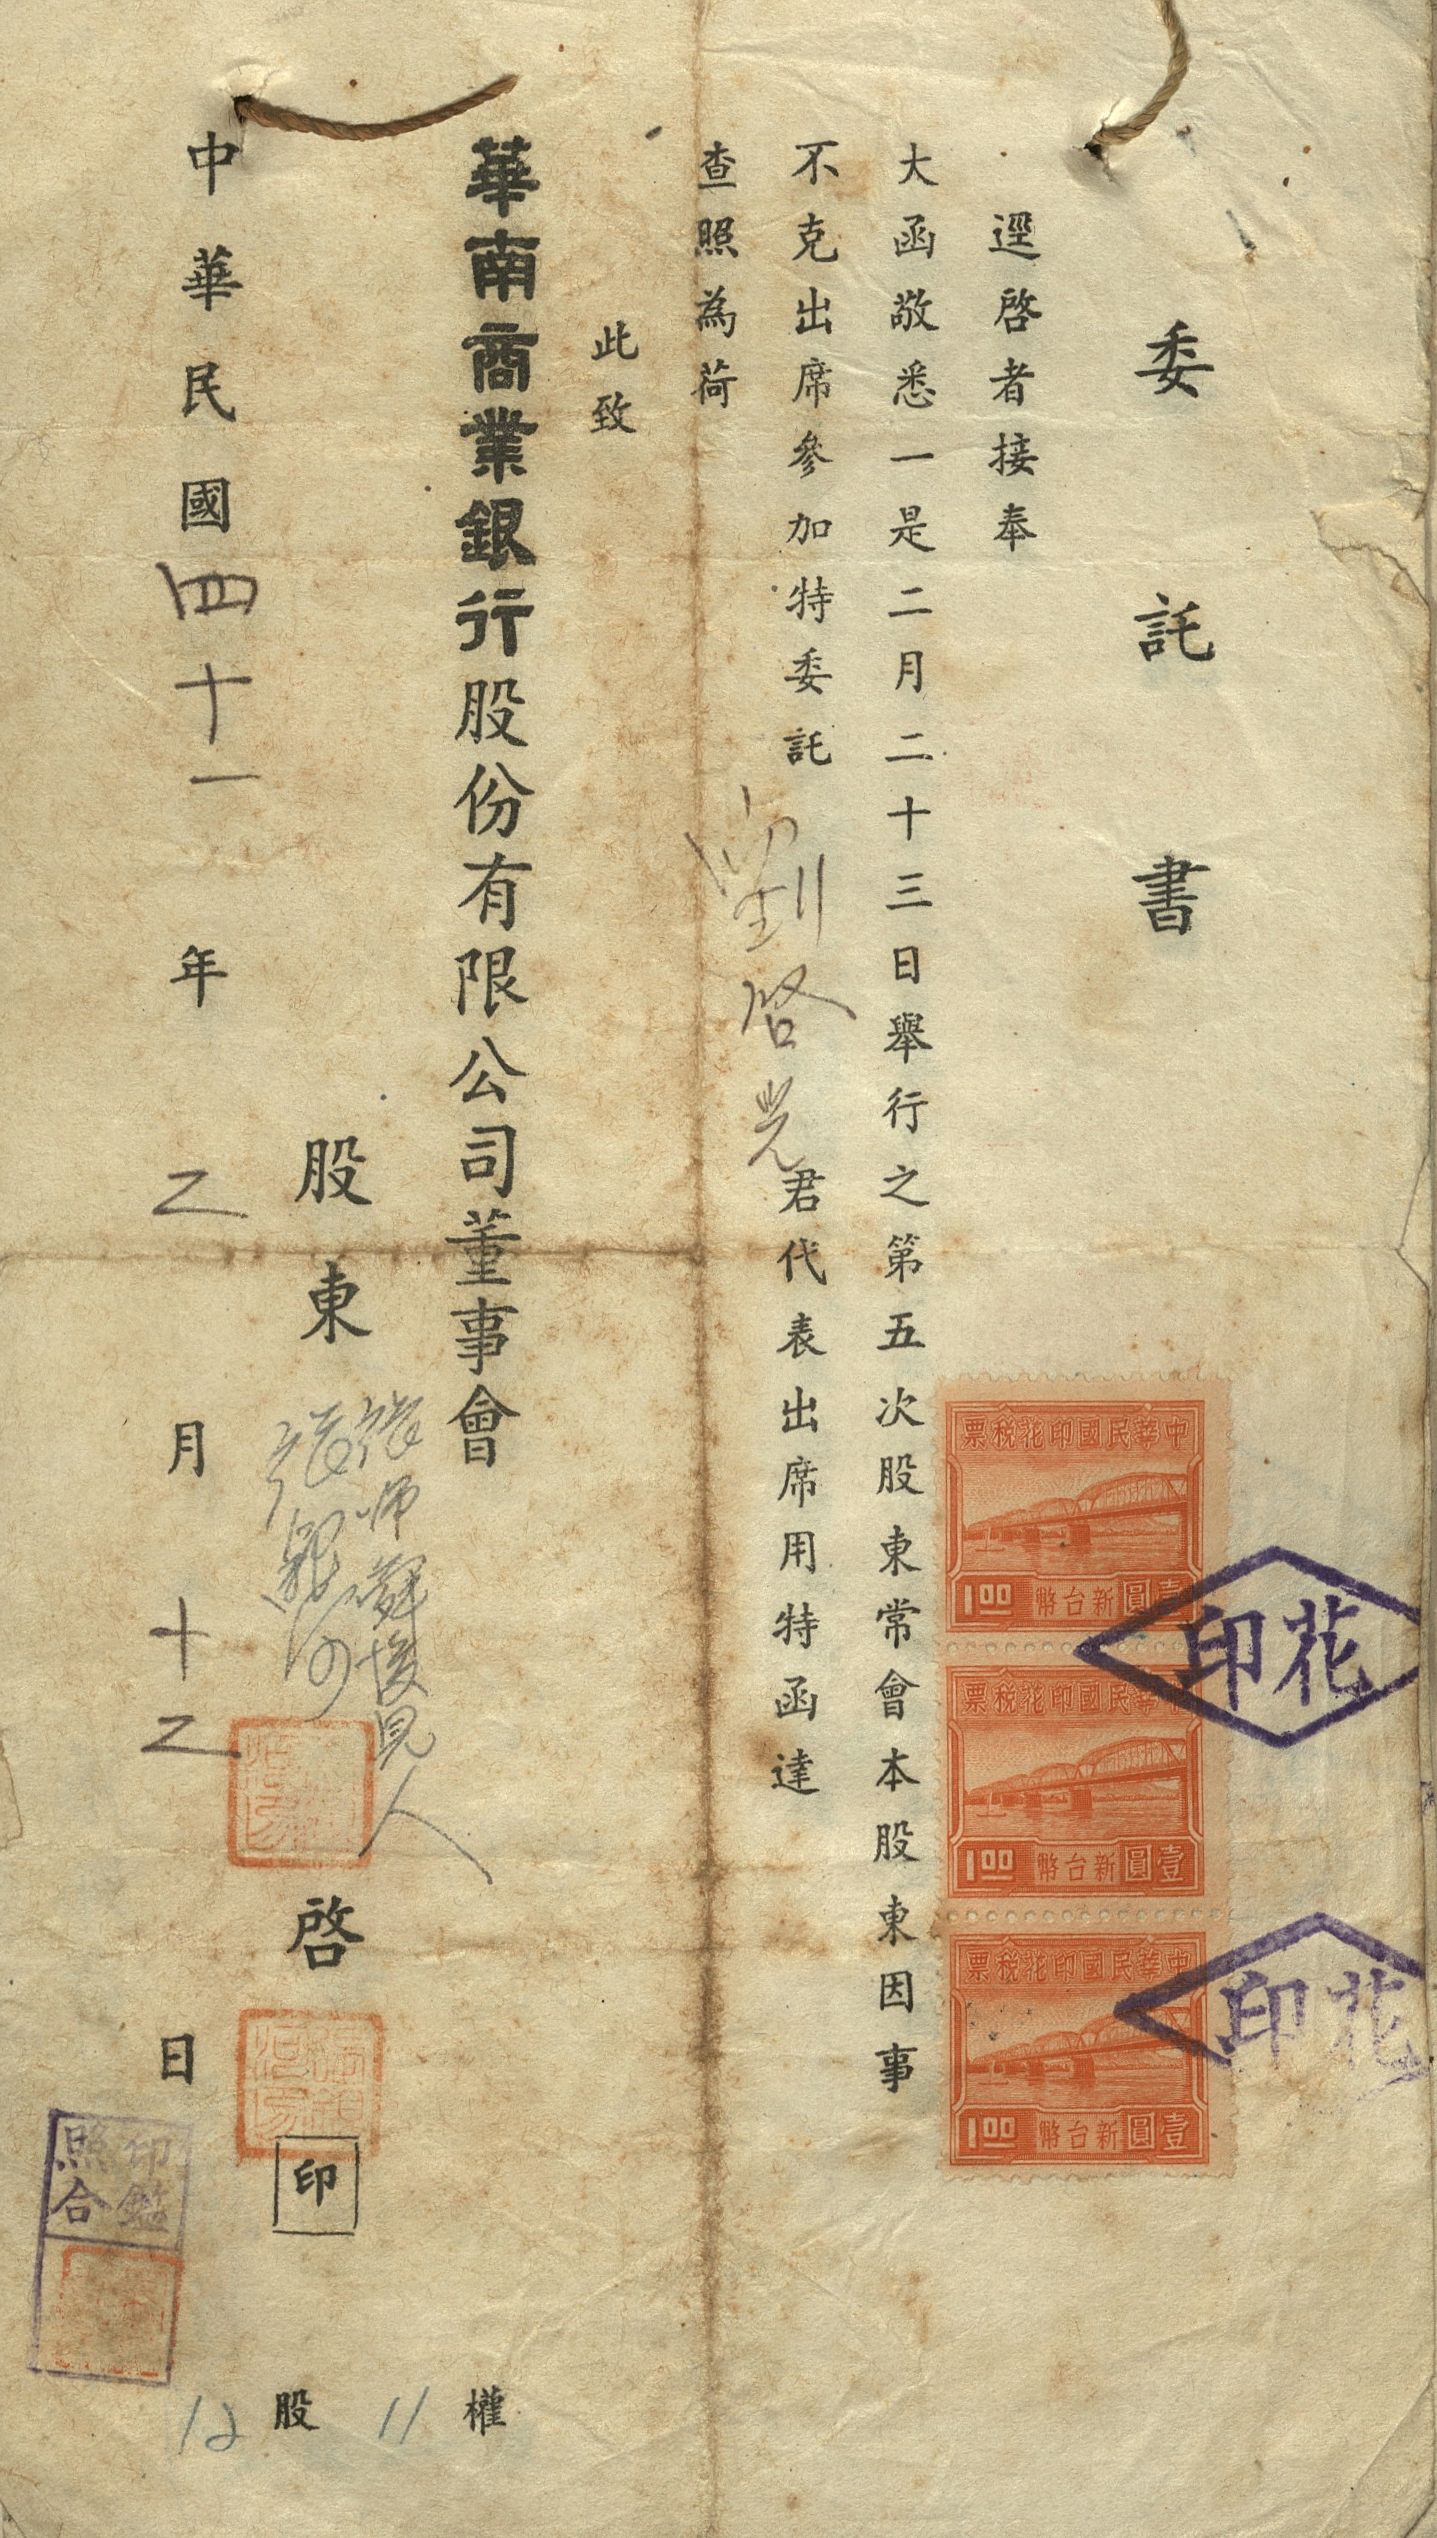 委託書
逕啓者接奉
大函敬悉一是二月二十三日舉行之第五次股東常會本股東因事
不克出席參加特委託劉啓光君代表出席用特函達
查照為荷
此致
華南商業銀行股份有限公司董事會
股東
張
後見人
啓
印
中華民國四十一年乙月十乙日
中華民國印花稅票
1.00
新台幣
壹圓
中華民國印花稅票
1.00
新台幣
壹圓
中華民國印花稅票
1.00
新台幣
壹圓
花印
花印
印鑑
照合
12股
11權